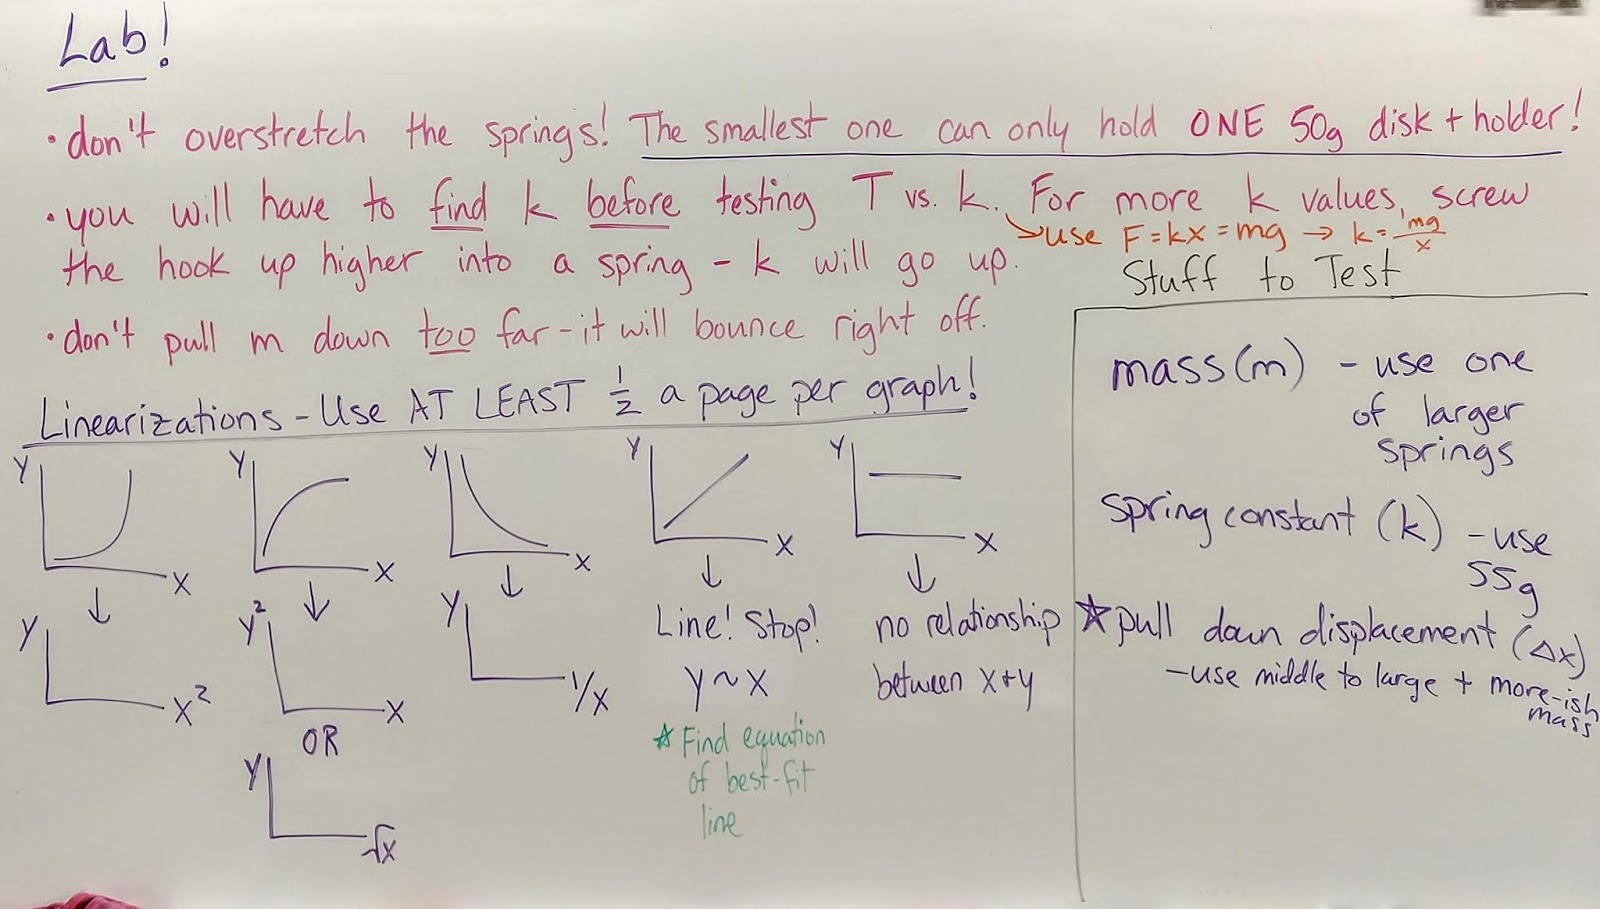 Lab!
• don't overstretch the springs! The smallest one can only hold ONE 50g disk + holder!
• you will have to find k before testing T vs. k. For more k values, screw
↘use F = kx = mg → k = mg/x
the hook up higher into a spring - k will go up.
• don't pull m down too far - it will bounce right off.
Linearizations - Use AT LEAST 1/2 a page per graph!
Y X
Y X
Y X
Y X
Y X
↓ ↓ ↓ ↓ ↓
Y X²
Y² X
OR
Y √X
Y 1/X
Line! Stop!
Y ~ X
☆ Find equation
of best-fit
line
no relationship
between X + Y
Stuff to Test
mass (m) - use one
of larger
springs
spring constant (k) - use
55g
☆ pull down displacement (Δx)
- use middle to large + more-ish
mass